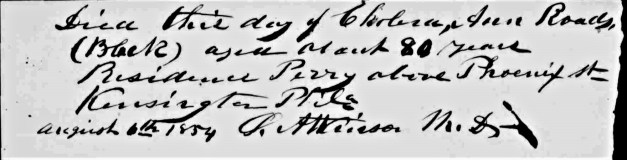 Died this day of Cholera, Ann Roads,
(Black) aged about 80 years
Residence Perry above Phoenix St
Kensington Phila
August 6th 1854 S. Atkinson M.D.